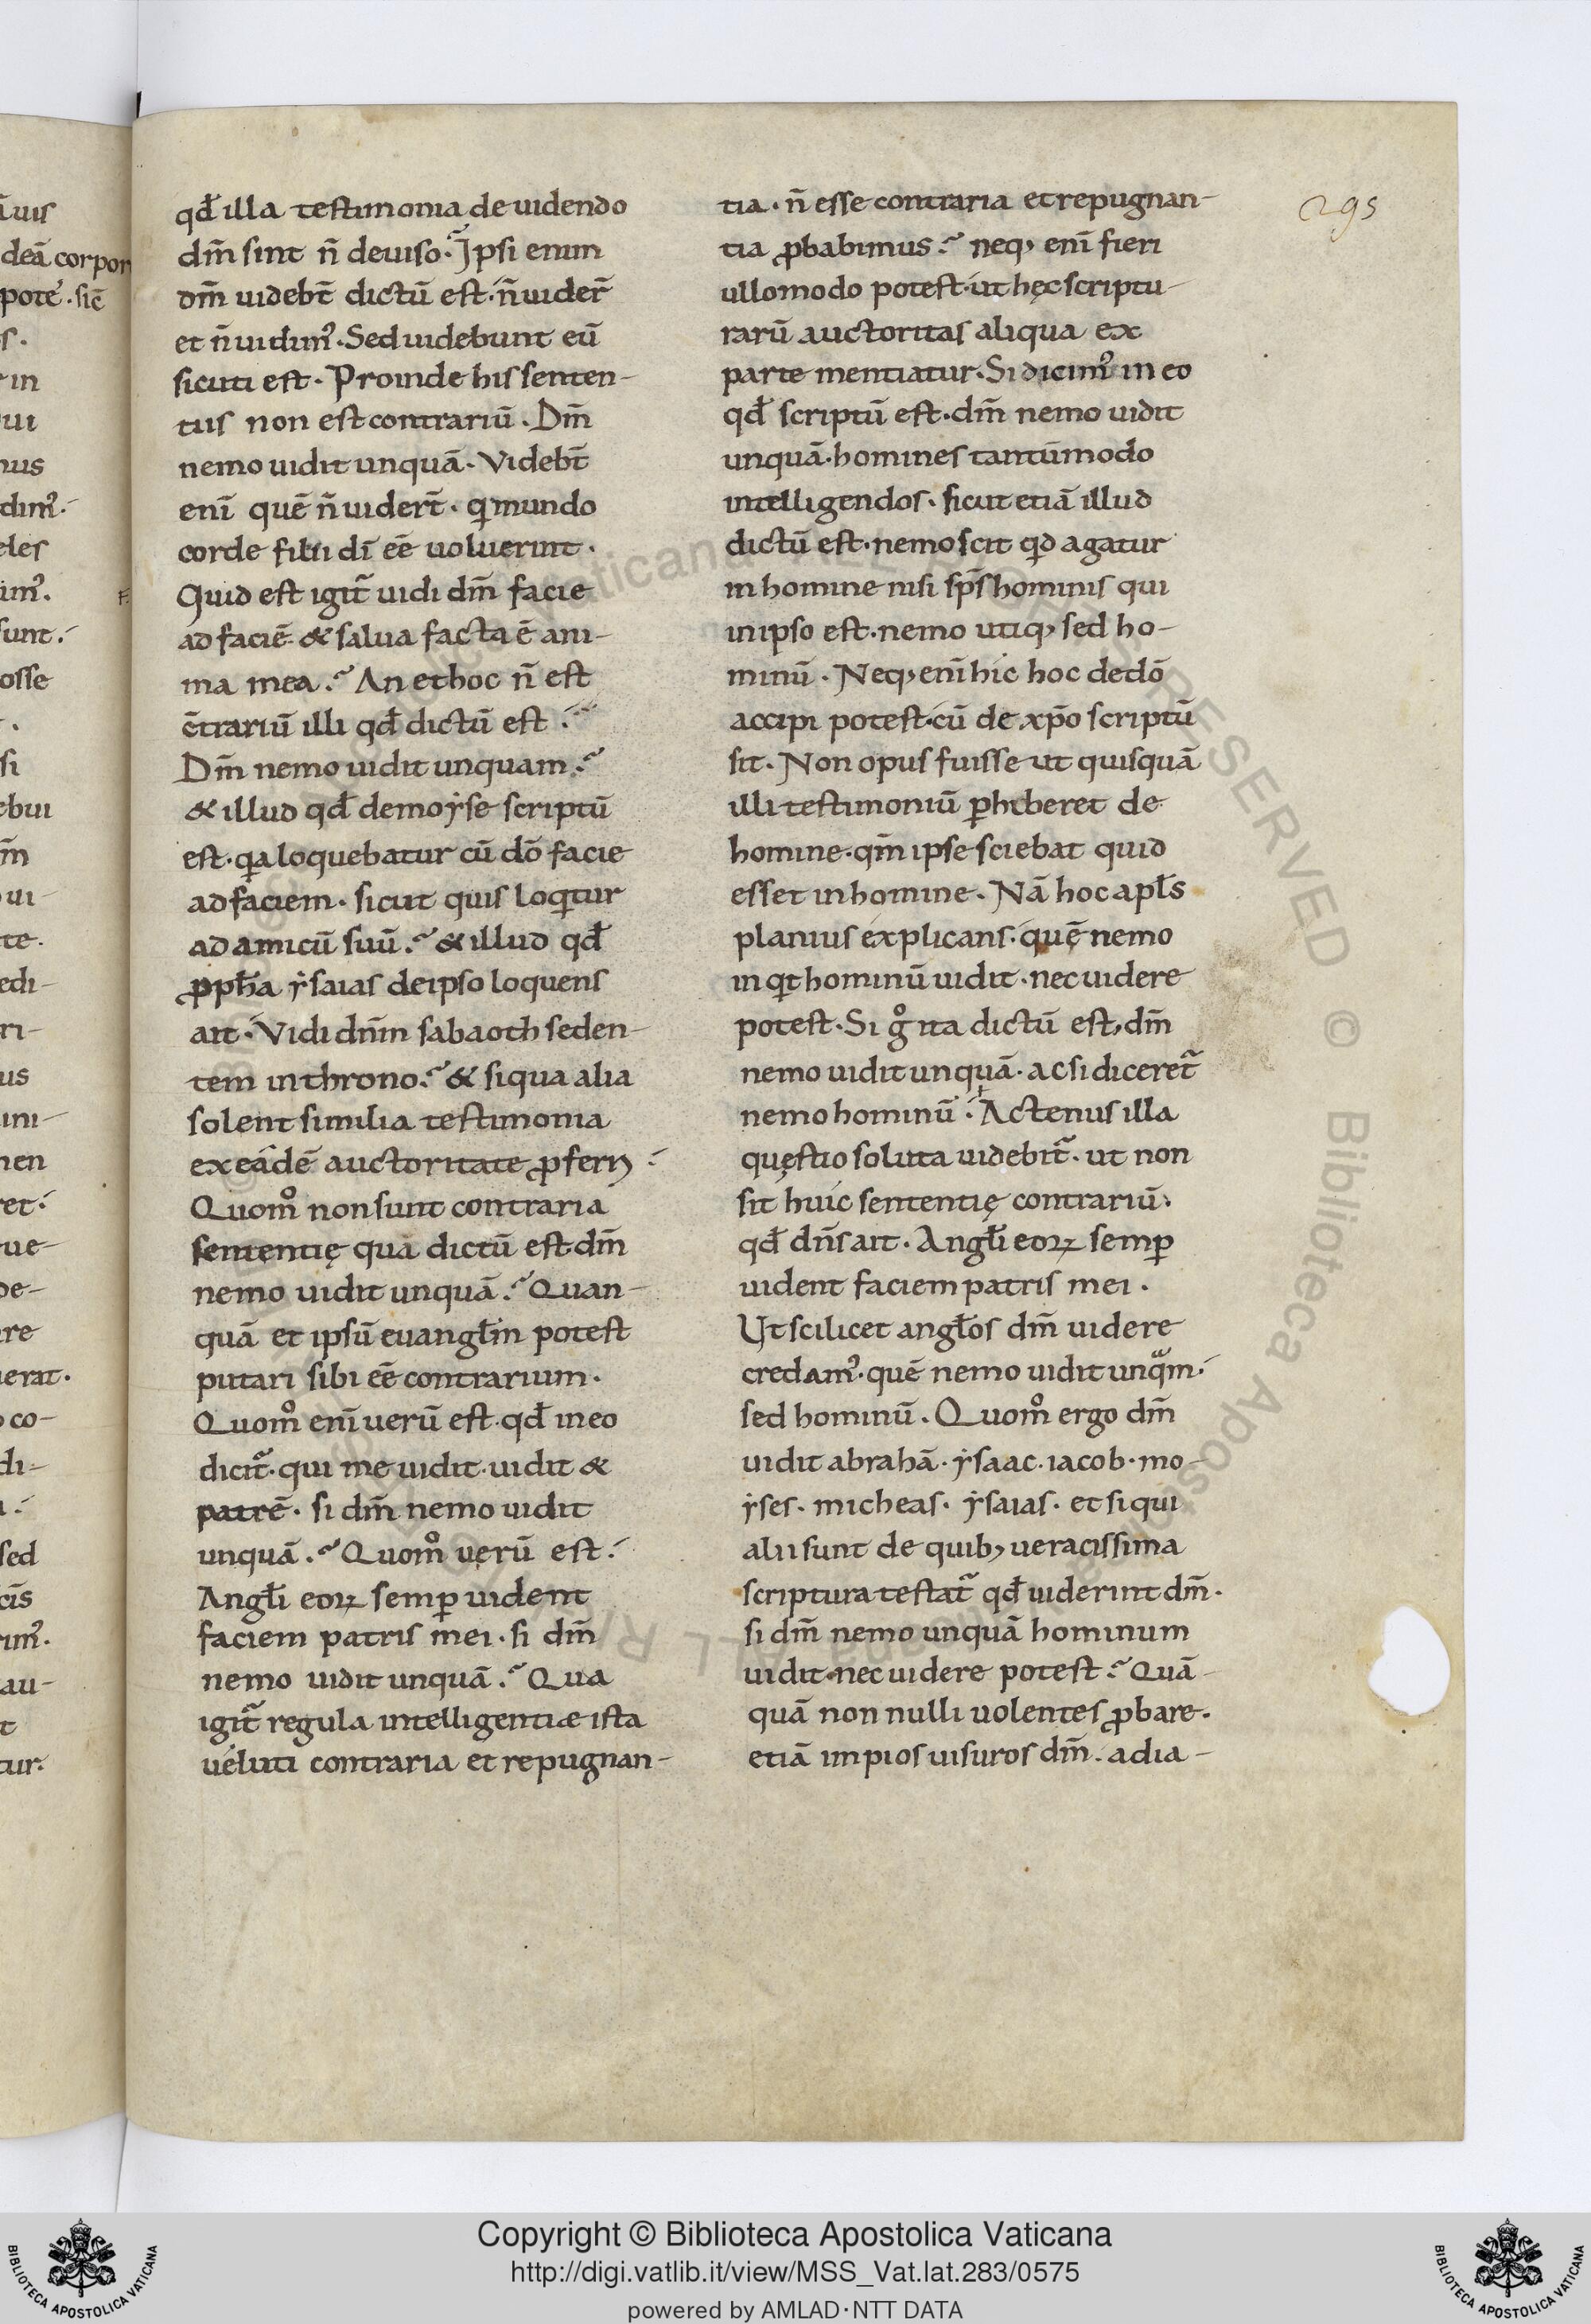 qđ illa testimonia de uidendo
dm̄ sint n̄ deuiso. Ipsi enim
dm̄ uidebt̄ dictū est. n̄ uider̄
et n̄ uidim᾿. Sed uidebunt eū
sicuti est. Proinde his senten-
tiis non est contrariū. Dm̄
nemo uidit unquā. Videbt̄
enī quē n̄ uidert̄. qi mundo
corde filii dī eē uoluerint.
Quid est igit̄ uidi dm̄ facie
ad faciē & salua facta ē ani-
ma mea? An et hoc n̄ est
c̄trariū illi qđ dictū est.
Dm̄ nemo uidit unquam?
& illud qđ de moẏse scriptū
est. qa loquebatur cū dō facie
ad faciem. sicut quis loqitur
ad amicū suū? & illud qđ
ꝓpħa ẏsaias de ipso loquens
ait. Vidi dn̄m sabaoth seden-
tem in throno? & si qua alia
solent similia testimonia
ex eadē auctoritate ꝓferri.
Quom̊ non sunt contraria
sententię qua dictū est dm̄
nemo uidit unquā? Quan-
quā et ipsū euangłm potest
putari sibi eē contrarium.
Quom̊ enī uerū est. qđ in eo
dicit̄. qui me uidit. uidit &
patrē. si dm̄ nemo uidit
unquā? Quom̊ uerū est.
Angłi eoꝝ semꝑ uident
faciem patris mei. si dm̄
nemo uidit unquā? Qua
igit̄ regula intelligentiæ ista
ueluti contraria et repugnan-
tia. n̄ esse contraria et repugnan-
tia ꝓbabimus? neqꝫ enī fieri
ullo modo potest. ut hęc scriptu-
rarū auctoritas aliqua ex
parte mentiatur. Si dicim᾿ in eo
qđ scriptū est. dm̄ nemo uidit
unquā. homines tantūmodo
intelligendos. sicut etiā illud
dictū est. nemo scit qid agatur
in homine nisi sp̄s hominis qui
in ipso est. nemo utiqꝫ sed ho-
minū. Neqꝫ enī hic hoc de dō
accipi potest. cū de xp̄o scriptū
sit. Non opus fuisse ut quisquā
illi testimoniū ꝑhiberet de
homine. qm̄ ipse sciebat quid
esset in homine. Nā hoc apłs
planius explicans. quē nemo
inqit hominū uidit. nec uidere
potest. Si g̊ ita dictū est, dm̄
nemo uidit unquā. ac si diceret̄
nemo hominū. Actenus illa
quęstio soluta uidebit̄. ut non
sit huic sententię contrariū.
qđ dn̄s ait. Angłi eoꝝ semꝑ
uident faciem patris mei.
Ut scilicet angłos dm̄ uidere
credam᾿. quē nemo uidit unqam.
sed hominū. Quom̊ ergo dm̄
uidit abrahā. ẏsaac. iacob. mo-
ẏses. micheas. ẏsaias. et si qui
alii sunt de quibꝫ ueracissima
scriptura testat̄ qđ uiderint dm̄.
si dm̄ nemo unquā hominum
uidit. nec uidere potest? Quā-
quā non nulli uolentes ꝓbare.
etiā impios uisuros dm̄. a dia-
295
Copyright © Biblioteca Apostolica Vaticana
http://digi.vatlib.it/view/MSS_Vat.lat.283/0575
powered by AMLAD·NTT DATA
BIBLIOTECA APOSTOLICA VATICANA
BIBLIOTECA APOSTOLICA VATICANA